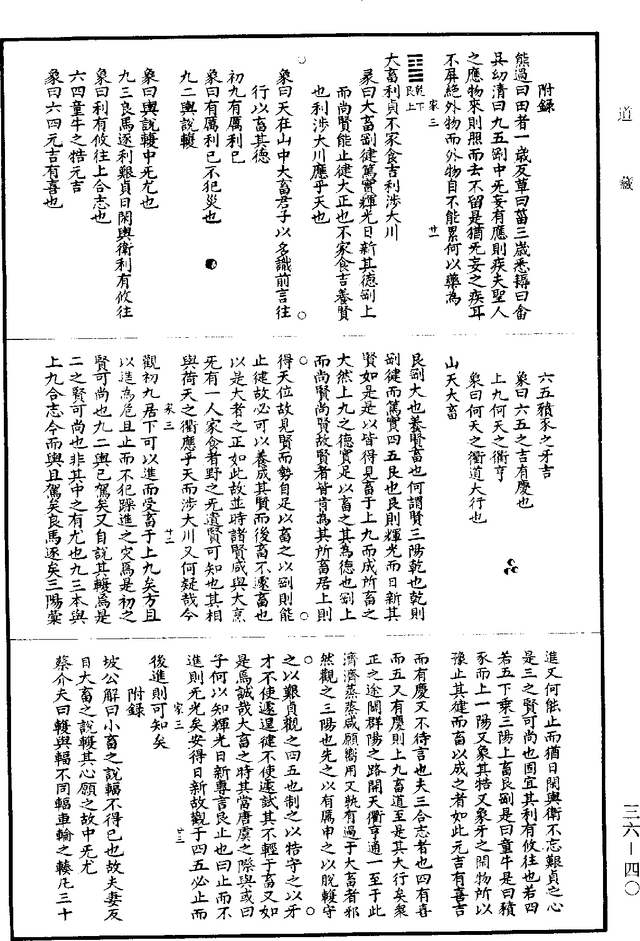 道藏
附錄
熊過曰田者一歲反草曰菑三歲悉耨曰畬
吳幼清曰九五剛中无妄有應則疾夫聖人
之應物來則照而去不留是猶无妄之疾耳
不屏絕外物而外物自不能累何以藥為
家三 廿一
乾下艮上
大畜利貞不家食吉利涉大川
彖曰大畜剛健篤實輝光日新其德剛上
而尚賢能止健大正也不家食吉養賢
也利涉大川應乎天也
象曰天在山中大畜君子以多識前言往
行以畜其德
初九有厲利已
象曰有厲利已不犯災也
九二輿說輹
象曰輿說輹中无尤也
九三良馬逐利艱貞日閑輿衛利有攸往
象曰利有攸往上合志也
六四童牛之牿元吉
象曰六四元吉有喜也
六五豶豕之牙吉
象曰六五之吉有慶也
上九何天之衢亨
象曰何天之衢道大行也
山天大畜
艮剛大也養賢畜也何謂賢三陽乾也乾則
剛健而篤實四五艮也艮則輝光而日新其
賢如是是以皆得見畜于上九而成所畜之
大然上九之德實足以畜之其為德也剛上
而尚賢尚賢故賢者皆肯為其所畜居上則
得天位故見賢而勢自足以畜之以剛則能
止健故必可以養成其賢而後畜不遽畜也
以是大者之正如此故並時諸賢咸與大烹
无有一人家食者野之无遺賢可知也其相
與荷天之衢應乎天而涉大川又何疑哉今
家三 廿二
觀初九居下可以進而受畜于上九矣方且
以進為危且止而不犯躁進之災焉是初之
賢可尚也九二輿已駕矣又自說其輹焉是
二之賢可尚也非其中之有尤也九三本與
上九合志今而輿且駕矣良馬逐矣三陽彙
進又何能止而猶日閑輿衛不忘艱貞之心
是三之賢可尚也固宜其利有攸往也若四
若五下乘三陽上畜艮剛是曰童牛是曰豶
豕而上一陽又象其牿又象牙之閑物所以
豫止其健而畜以成之者如此元吉有喜吉
而有慶又不待言也夫三合志者也四有喜
而五又有慶則上九畜道至是其大行矣衆
正之途闢群陽之路開天衢亨通一至于此
濟濟蒸蒸咸願嚮用又孰有過于大畜者邪
然觀之三陽也先之以有厲申之以脫輹守
之以艱貞觀之四五也制之以牿守之以牙
才不使遽逞健不使遽試其不輕于畜又如
是焉誠哉大畜之時其當唐虞之際與或曰
子何以知輝光日新專言艮止也曰止而不
進則无光矣安得日新故觀于四五必止而
家三 廿三
後進則可知矣
附錄
坡公解曰小畜之說輻不得已也故夫妻反
目大畜之說輹其心願之故中无尤
蔡介夫曰輹與輻不同輻車輪之轑凡三十
三六—四〇